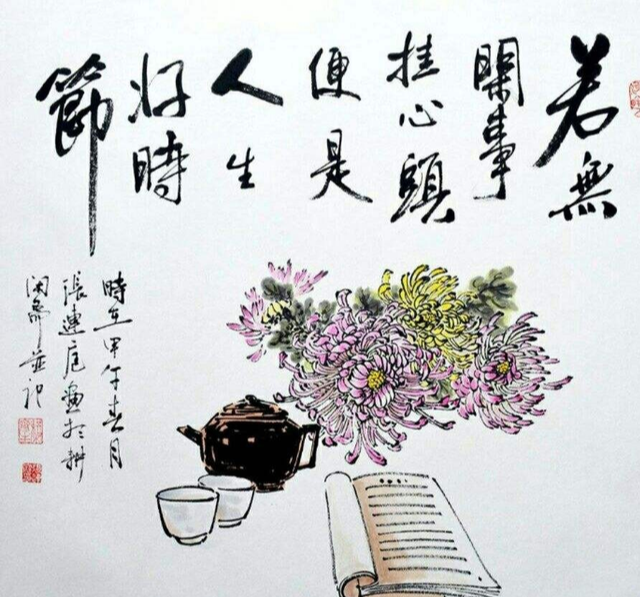 若無
閑事
挂心頭
便是
人生
好時
節
時在甲午春月
張連庭畫於耕
閑齋並記